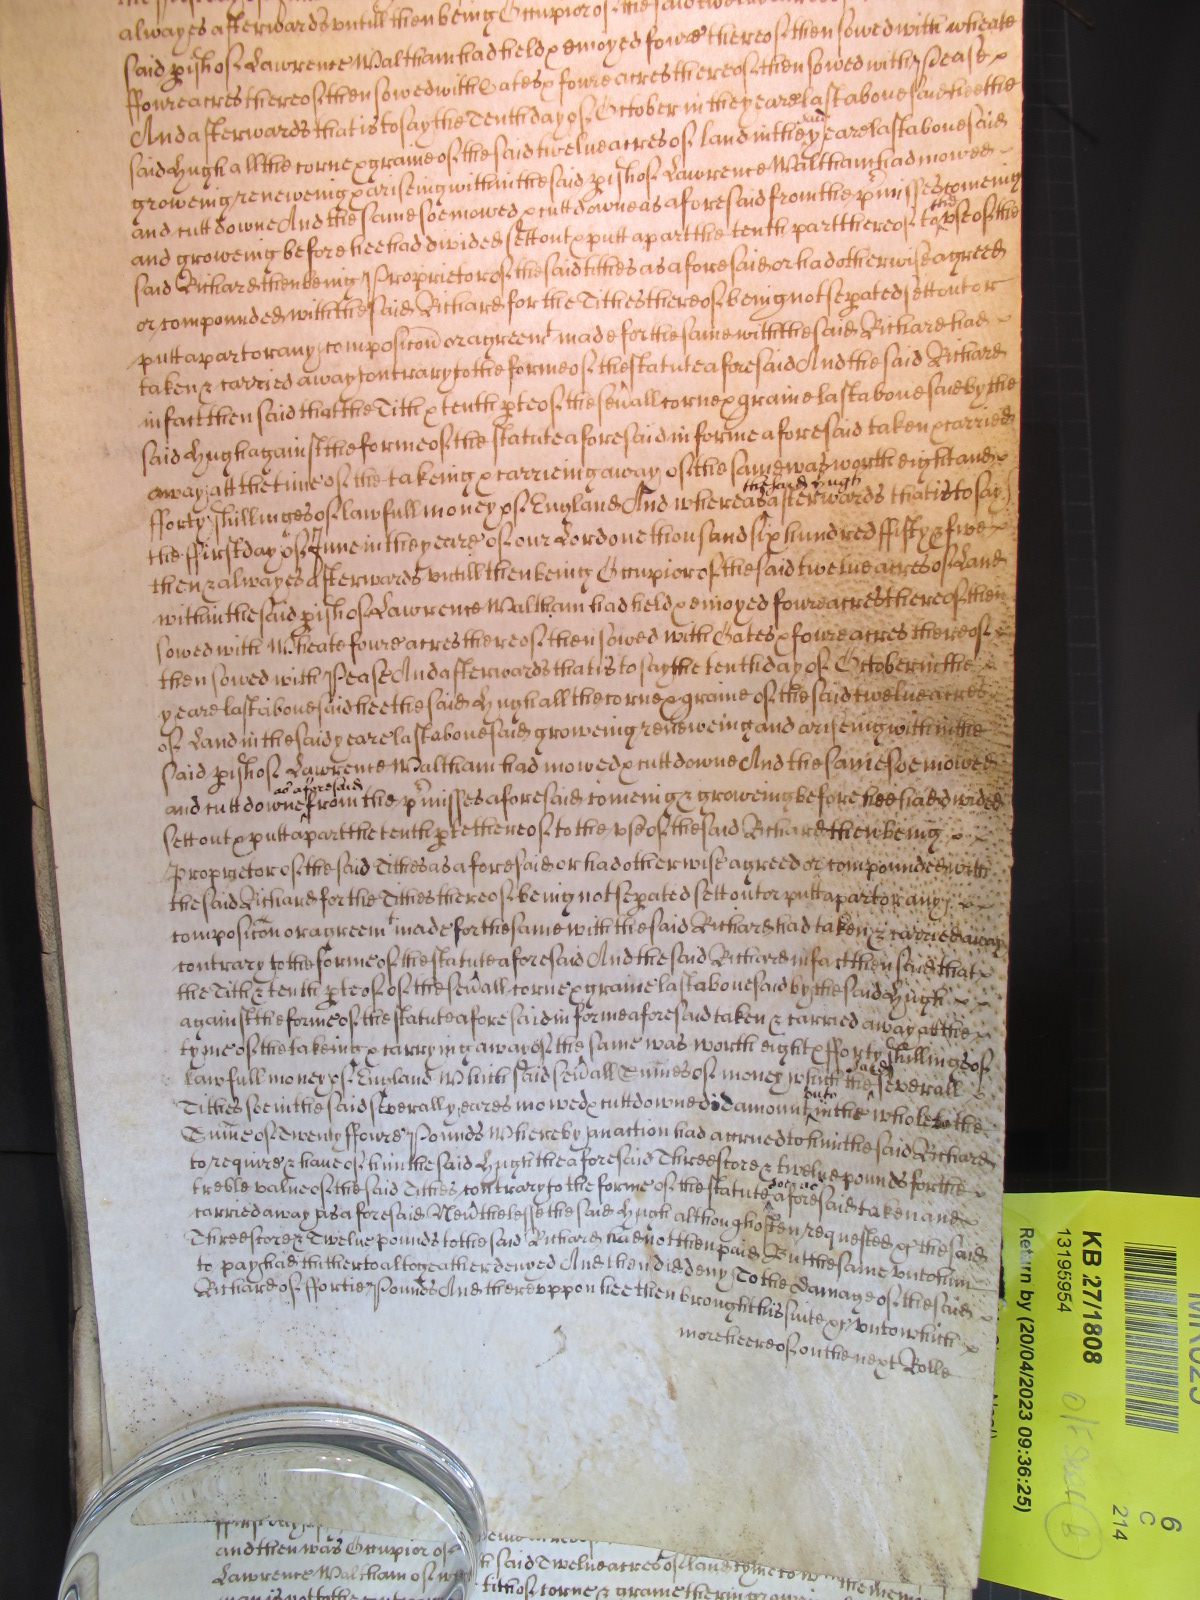 alwayes afterwards untill then being Occupior of the said twelve acres
said pish of Lawrence Waltham had held & enioyed fowre thereof then sowed with wheate
ffoure acres thereof then sowed with Oates & foure acres thereof then sowed with Pease
And afterwards that is to say the Tenth day of October in the yeare last abovesaid hee the
said Hugh all the corne & graine of the said twelve acres of land in the said yeare last abovesaid
groweing reneweing & ariseing within the said pish of Lawrence Waltham had mowed
and cutt downe And the same soe mowed & cutt downe as aforesaid from the pmisses comeing
and groweing before hee had divided sett out & putt apart the tenth part thereof to the use of the
said Richard then being Proprietor of the said tithes as aforesaid or had otherwise agreed
or compounded with the said Richard for the Tithes thereof being not sepated sett out or
putt apart or any composicon or agreemt made for the same with the said Richard had
taken & carried away contrary to the forme of the statute aforesaid And the said Richard
in fact then said that the Tith & tenth pte of the sevall corne & graine last abovesaid by the
said Hugh against the forme of the statute aforesaid in forme aforesaid taken & carried
away att the time of the takeing & carrieing away of the same was worth eight and
fforty shillinges of lawfull money of England And whereas the said Hugh afterwards that is to say
the ffirst day of June in the yeare of our Lord one thousand six hundred ffifty & five
then & alwayes afterwards untill then being Occupior of the said twelve acres of Land
within the said pish of Lawrence Waltham had held & enioyed foure acres thereof then
sowed with Wheate foure acres thereof then sowed with Oates & foure acres thereof
then sowed with Pease And afterwards that is to say the tenth day of October in the
yeare last abovesaid hee the said Hugh all the corne & graine of the said twelve acres
of Land in the said yeare last abovesaid groweing reneweing and ariseing within the
said pish of Lawrence Waltham had mowed & cutt downe And the same soe mowed
and cutt downe as aforesaid from the pmisses aforesaid comeing & groweing before hee had divided
sett out & putt apart the tenth pte thereof to the use of the said Richard then being
Proprietor of the said Tithes as aforesaid or had otherwise agreed or compounded with
the said Richard for the Tithes thereof being not sepated sett out or putt apart or any
composicon or agreemt made for the same with the said Richard had taken & carried away
contrary to the forme of the statute aforesaid And the said Richard in fact then said that
the Tith & tenth pte of the sevall corne & graine last abovesaid by the said Hugh
against the forme of the statute aforesaid in forme aforesaid taken & carried away at the
tyme of the takeing & carrying away of the same was worth eight & fforty shillings of
lawfull money of England Which said sevall Sumes of money which the said severall
Tithes soe in the said severall yeares mowed & cutt downe did amount unto in the whole to the
Sume of Twenty ffoure Pounds Whereby an action had accrued to him the said Richard
to require & have of him the said Hugh the aforesaid Threescore & twelve pounds for the
treble value of the said Tithes contrary to the forme of the statute aforesaid soe as taken and
carried away as aforesaid Nevthelesse the said Hugh although often requested &c the said
Threescore & Twelve pounds to the said Richard had not then paid But the same unto him
to pay had hitherto altogeather denyed And then did deny To the damage of the said
Richard of ffortie Pounds And thereuppon hee then brought his suite &c unto which
more heereof on the next Rolle
and then was Occupior of
said Twelve acres of land
Lawrence Waltham
tith of corne & graine
KB 27/1808
13195954
Return by (20/04/2023 09:36:25)
6
C
214